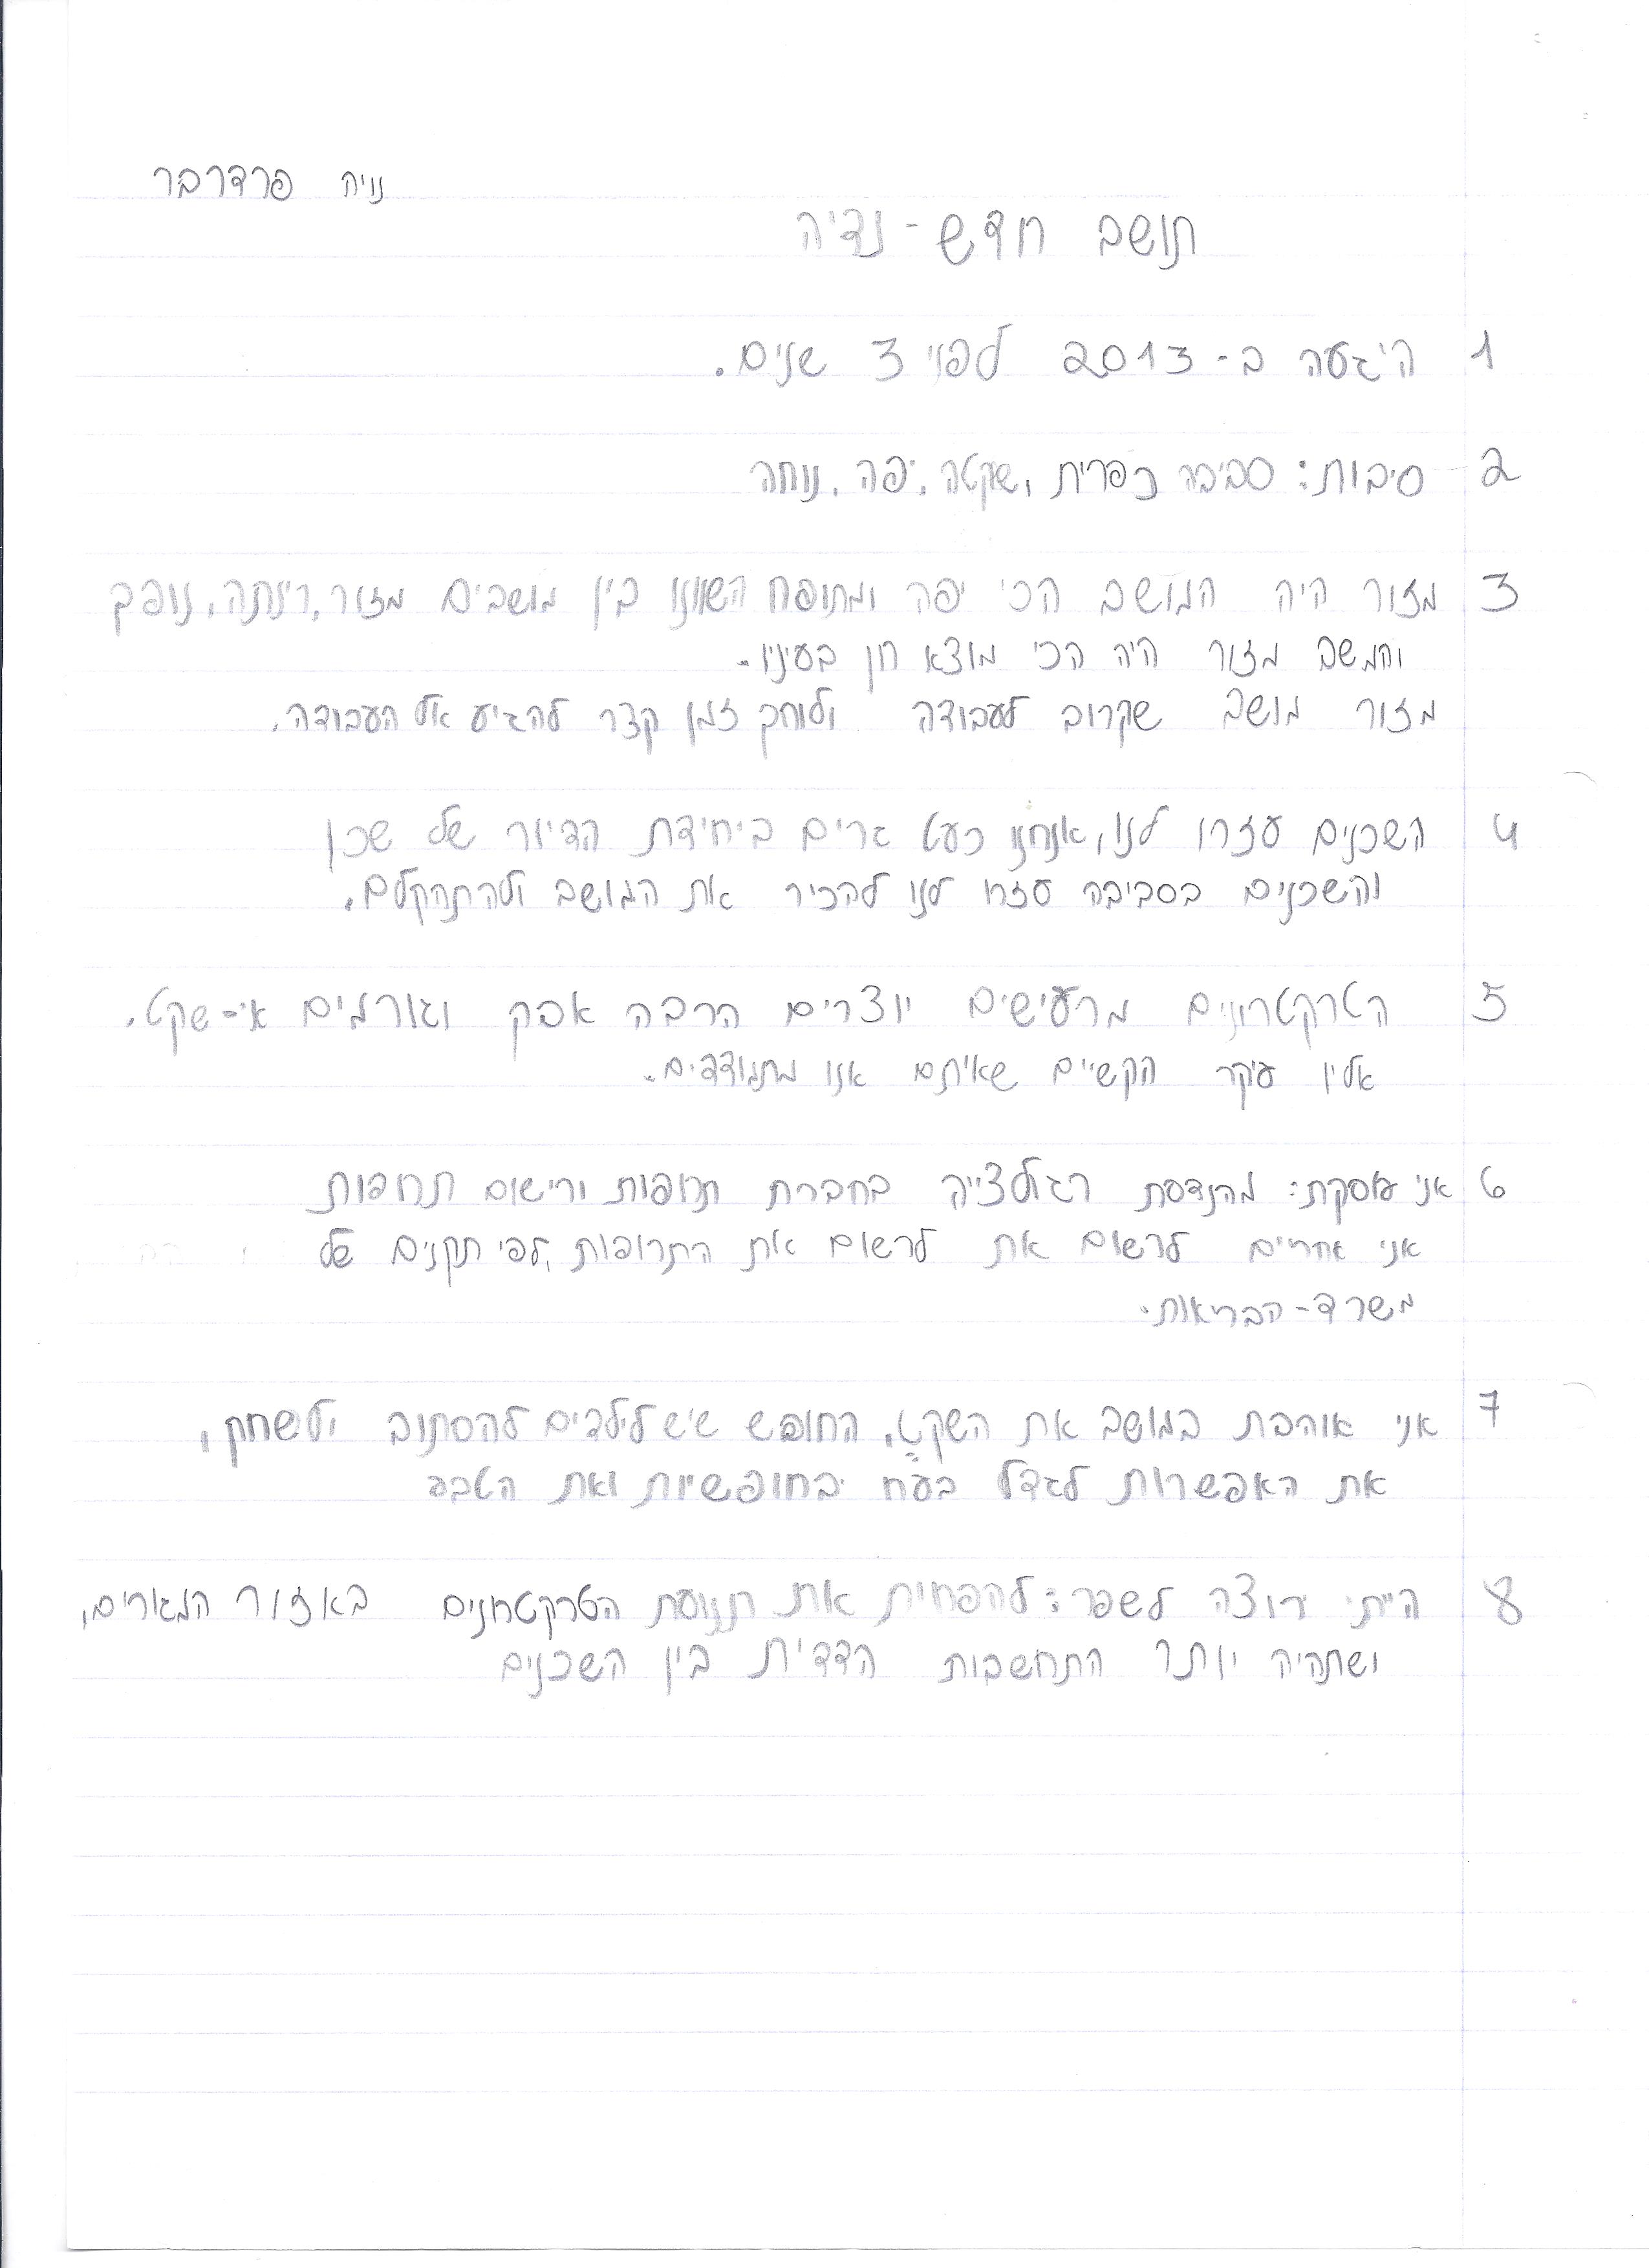 נויה פרדרבר
תושב חדש - נדיה
1 היגעה ב- 2013 לפני 3 שנים.
2 סיבות: סביבה כפרית, שקטה, יפה, נוחה
3 מזור היה המושב הכי יפה ומתופח השוונו בין מושבים מזור, רינתיה, נופך
והמשב מזור היה הכי מוצא חן בעינינו.
מזור מושב שקרוב לעבודה ולוחך זמן קצר להגיע אל העבודה.
4 השכנים עזרו לנו, אנחנו כעט גרים ביחידת הדיור של שכן
והשכנים בסביבה עזרו לנו להכיר את המושב ולהתהקלם.
5 הטרקטרונים מרעישים יוצרים הרבה אבק וגורמים אי-שקט.
אלין עיקר הקשיים שאיתם אנו מתמודדים.
6 אני עוסקת: מהנדסת רגולצייה בחברת תרופות ורישום תרופות
אני אחריים לרשום את לרשום את התרופות, לפי תקנים של
משרד-הבריאות.
7 אני אוהבת במושב את השקט, החופש שיש לילדים להסתובב ולשחק,
את האפשרות לגדל בע"ח בחופשיות ואת הטבע
8 הייתי רוצה לשפר: להפחית את תנועת הטרקטרונים באזור המגורים,
ושתהיה יותר התחשבות הדדית בין השכנים